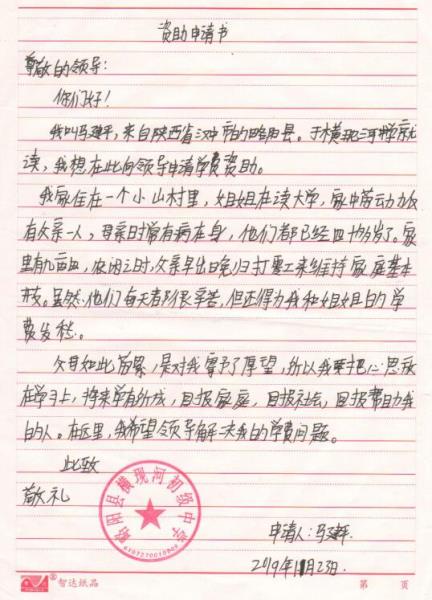 资助申请书
尊敬的领导：
你们好！
我叫马建平，来自陕西省汉中市的略阳县。于横现河中学就
读，我想在此向领导申请学费资助。
我家住在一个小山村里，姐姐在读大学，家中劳动力仅
有父亲一人，母亲日常有病在身，他们都已经四十多岁了。家
里有几亩田，农闲之时，父亲早出晚归打零工来维持家庭基本
开支。虽然，他们每天都很辛苦，但还得为我和姐姐的学
费发愁。
父母如此劳累，是对我寄予了厚望，所以我要把心思放
在学习上，将来学有所成，回报家庭，回报社会，回报帮助我
的人。在这里，我希望领导解决我的学费问题。
此致
敬礼
略阳县横现河初级中学
申请人：马建平
2019年11月23日.
智达纸品
第 页